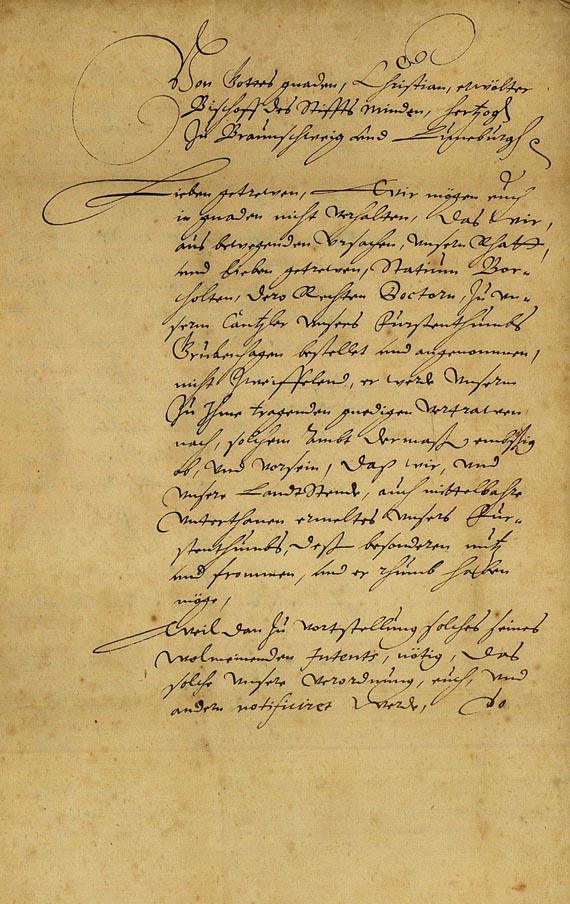 Von Gottes gnaden, Christian, erwölter
Bischoff des Stiffts Minden, Hertzog
Zu Braunschweig und Lüneburgh
Lieben getrewen, Wir mögen euch
in gnaden nicht verhalten, Das wir,
aus bewegenden Ursachen, unsern Rhatt,
und lieben getrewen, Statium Bor-
cholten, dero Rechten Doctorn, Zu un-
serm Cantzler unsers Fürstenthumbs
Grubenhagen bestellet und angenommen,
nicht Zweiffelend, er werde unserm
Zu Ihme tragenden gnedigen vertrawen
nach, solchem Ambt dermaß embßig
ob, und vorsein, Daß wir, und
unsere LandtStende, auch mittelbahre
Unterthanen ermeltes unsers Für-
stenthumbs, deß besonderen nutz
und frommen, und er rhumb haben
möge,
Weil dan Zu vortstellung solches seines
wolmeinenden Intents, nötig, Das
solche unsere verordnung, euch, und
andern notificiret werde, So